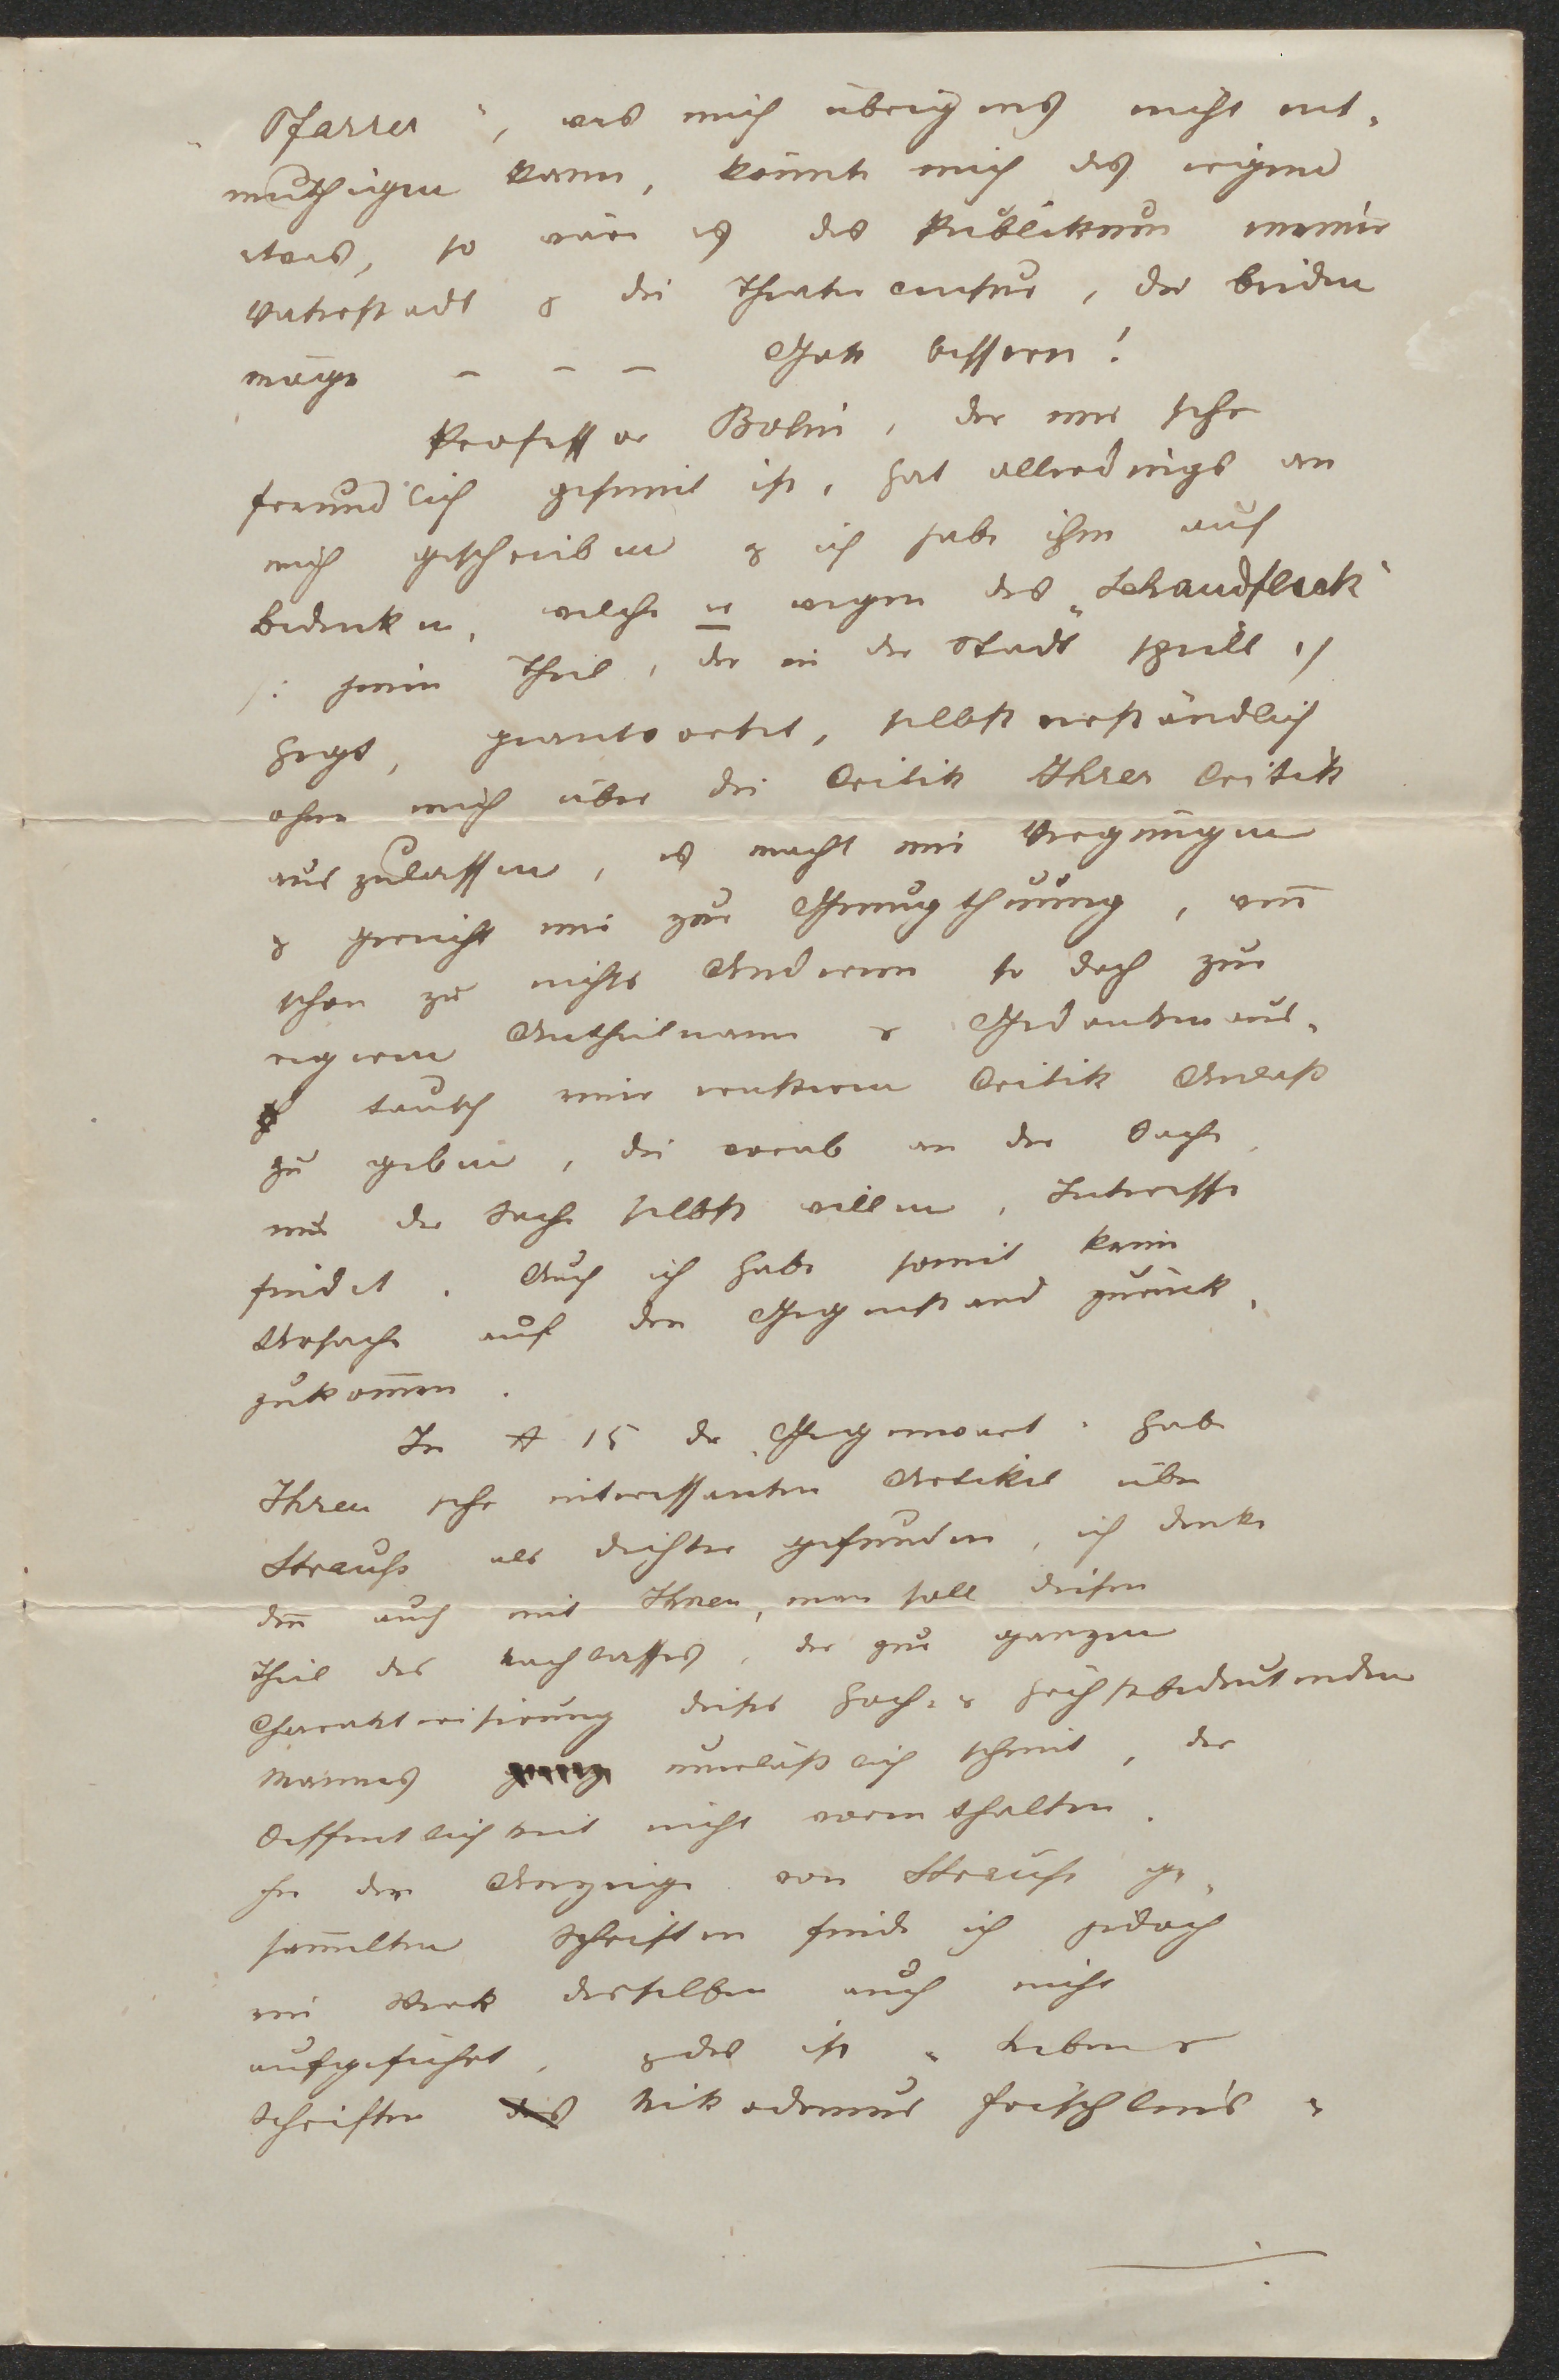 „Pfarrer“, was mich übrigens nicht ent-
muthigen kann, könnte mich das irgend
etwas, so wäre es das Publikum meiner
Vaterstadt & die Theatercensur, die beiden
möge – – – Gott bessern!
Professor Bolin, der mir sehr
freundlich gesinnt ist, hat allerdings an
mich geschrieben & ich habe ihm auf
Bedenken, welche er wegen des „Schandfleck“
/: jenen Theil, der in der Stadt spielt :/
hegt, geantwortet, selbstverständlich
ohne mich über die Critik Ihrer Critik
auszulassen, es macht mir Vergnügen
& gereicht mir zur Genugthuung, wenn
schon zu nichts Anderem so doch zur
regeren Antheilnahme & Gedankenaus-
tausch einer ernsteren Critik Anlaß
zu geben, die vorab an der Sache,
um der Sache selbst willen, Interesse
findet. Auch ich habe somit keine
Ursache auf den Gegenstand zurück-
zukommen.
In № 15 der „Gegenwart“ habe
Ihren sehr interessanten Artikel über
Strauß als Dichter gefunden, ich denke
denn auch mit Ihnen, man soll diesen
Theil des Nachlasses, der zur ganzen
Charakterisirung dieses hoch- & höchstbedeutenden
Mannes unerläßlich scheint, der
Oeffentlichkeit nicht vorenthalten.
In der Anzeige von Strauß ge-
sammelten Schriften finde ich jedoch
ein Werk desselben auch nicht
aufgeführt, & das ist „Leben &
Schriften des Nikodemus Frischlin's“